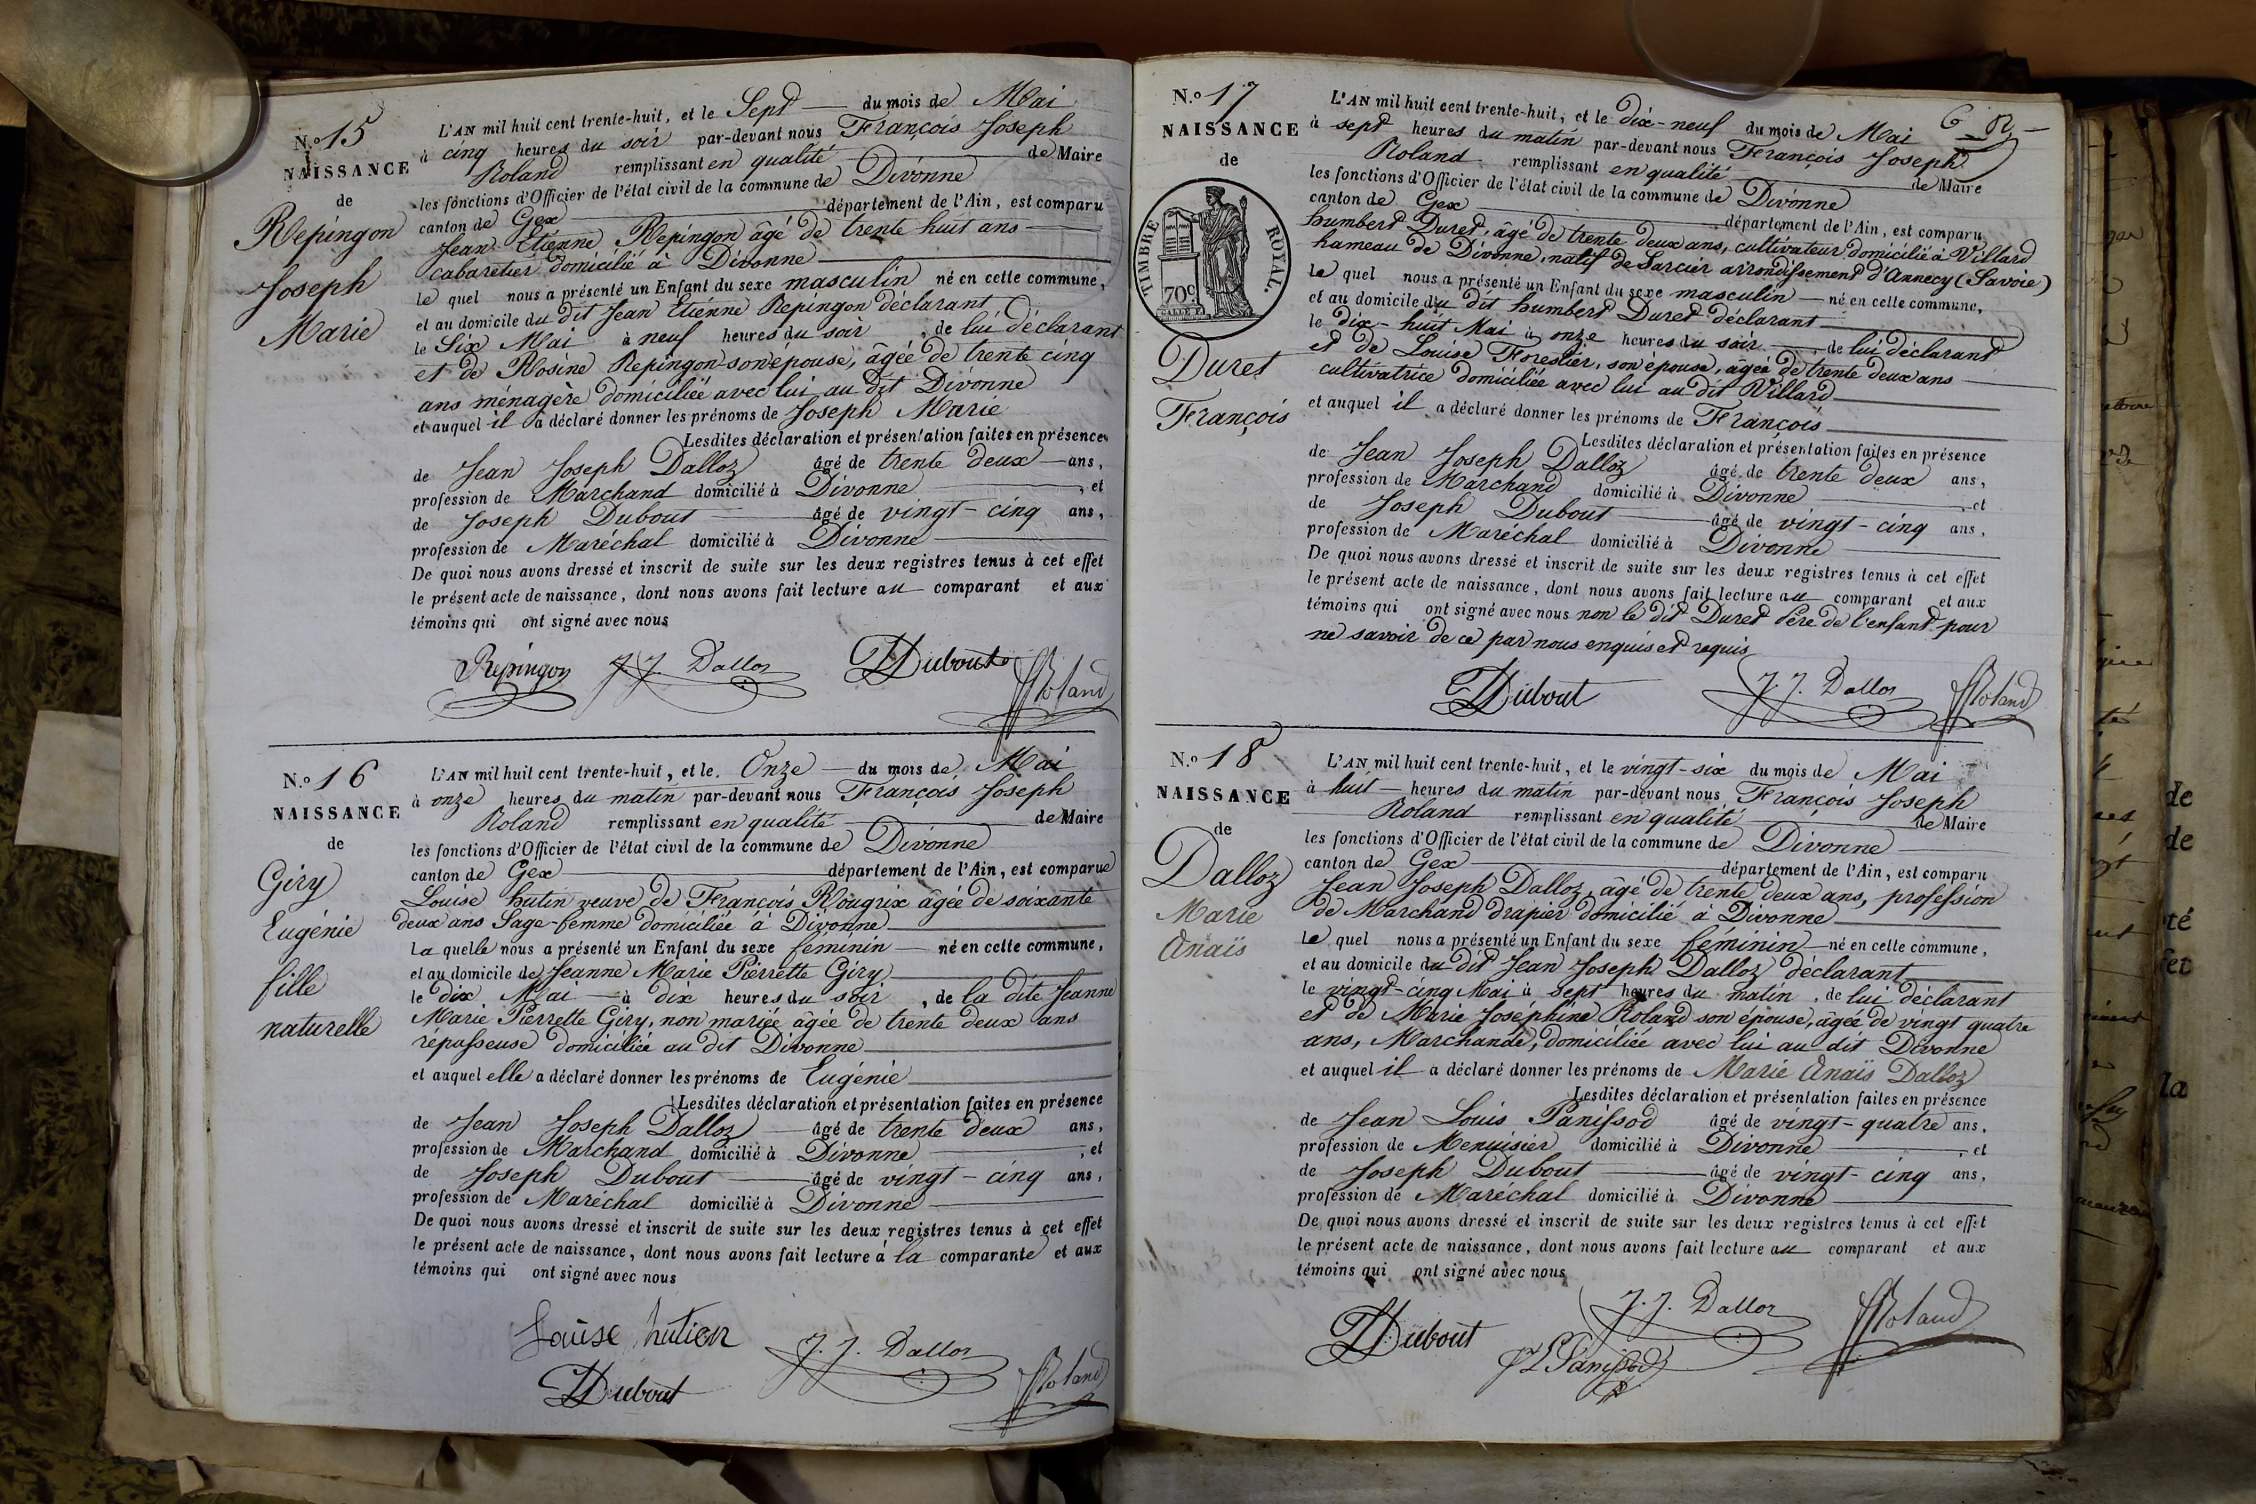 N.o 15
NAISSANCE
de
Repingon
Joseph
Marie
L'AN mil huit cent trente-huit, et le Sept du mois de Mai
à cinq heures du soir par-devant nous François Joseph
Roland remplissant en qualité de Maire
les fonctions d'Officier de l'état civil de la commune de Divonne
canton de Gex département de l'Ain, est comparu
Jean Etienne Repingon âgé de trente huit ans
Cabaretier domicilié à Divonne
le quel nous a présenté un Enfant du sexe masculin né en cette commune,
et au domicile du dit Jean Etienne Repingon déclarant
le Six Mai à neuf heures du soir, de lui déclarant
et de Rosine Repingon son épouse, âgée de trente cinq
ans ménagère domiciliée avec lui au dit Divonne
et auquel il a déclaré donner les prénoms de Joseph Marie
Lesdites déclaration et présentation faites en présence
de Jean Joseph Dalloz âgé de trente deux ans,
profession de Marchand domicilié à Divonne, et
de Joseph Dubout âgé de vingt-cinq ans,
profession de Maréchal domicilié à Divonne
De quoi nous avons dressé et inscrit de suite sur les deux registres tenus à cet effet
le présent acte de naissance, dont nous avons fait lecture au comparant et aux
témoins qui ont signé avec nous
Repingon J. J. Dalloz Dubout Roland
N.o 16
NAISSANCE
de
Giry
Eugénie
fille
naturelle
L'AN mil huit cent trente-huit, et le Onze du mois de Mai
à onze heures du matin par-devant nous François Joseph
Roland remplissant en qualité de Maire
les fonctions d'Officier de l'état civil de la commune de Divonne
canton de Gex département de l'Ain, est comparue
Louise hutin veuve de François Rougrix âgée de soixante
deux ans Sage-femme domiciliée à Divonne
La quelle nous a présenté un Enfant du sexe féminin né en cette commune,
et au domicile de Jeanne Marie Pierrette Giry
le dix Mai à dix heures du soir, de la dite Jeanne
Marie Pierrette Giry, non mariée âgée de trente deux ans
répasseuse domiciliée au dit Divonne
et auquel elle a déclaré donner les prénoms de Eugénie
Lesdites déclaration et présentation faites en présence
de Jean Joseph Dalloz âgé de trente deux ans,
profession de Marchand domicilié à Divonne, et
de Joseph Dubout âgé de vingt-cinq ans,
profession de Maréchal domicilié à Divonne
De quoi nous avons dressé et inscrit de suite sur les deux registres tenus à cet effet
le présent acte de naissance, dont nous avons fait lecture à la comparante et aux
témoins qui ont signé avec nous
Louise hutien J. J. Dalloz Roland
Dubout
N.o 17
NAISSANCE
de
TIMBRE ROYAL.
70c
Duret
François
L'AN mil huit cent trente-huit, et le dix-neuf du mois de Mai
à sept heures du matin par-devant nous François Joseph
Roland remplissant en qualité de Maire
les fonctions d'Officier de l'état civil de la commune de Divonne
canton de Gex département de l'Ain, est comparu
humbert Duret, âgé de trente deux ans, cultivateur domicilié à Villard
hameau de Divonne, natif de Sarcier arrondissement d'Annecy (Savoie)
le quel nous a présenté un Enfant du sexe masculin né en cette commune,
et au domicile du dit humbert Duret déclarant
le dix-huit Mai à onze heures du soir de lui déclarant
et de Louise Forestier, son épouse, âgée de trente deux ans
cultivatrice domiciliée avec lui au dit Villard
et auquel il a déclaré donner les prénoms de François
Lesdites déclaration et présentation faites en présence
de Jean Joseph Dalloz âgé de trente deux ans,
profession de Marchand domicilié à Divonne, et
de Joseph Dubout âgé de vingt-cinq ans,
profession de Maréchal domicilié à Divonne
De quoi nous avons dressé et inscrit de suite sur les deux registres tenus à cet effet
le présent acte de naissance, dont nous avons fait lecture au comparant et aux
témoins qui ont signé avec nous non le dit Duret Père de l'enfant pour
ne savoir de ce par nous enquis et requis
Dubout J. J. Dalloz Roland
N.o 18
NAISSANCE
de
Dalloz
Marie
Anaïs
L'AN mil huit cent trente-huit, et le vingt-six du mois de Mai
à huit heures du matin par-devant nous François Joseph
Roland remplissant en qualité de Maire
les fonctions d'Officier de l'état civil de la commune de Divonne
canton de Gex département de l'Ain, est comparu
Jean Joseph Dalloz, âgé de trente deux ans, profession
de Marchand drapier domicilié à Divonne
le quel nous a présenté un Enfant du sexe féminin né en cette commune,
et au domicile du dit Jean Joseph Dalloz déclarant
le vingt-cinq Mai à Sept heures du matin, de lui déclarant
et de Marie Joséphine Roland son épouse, âgée de vingt quatre
ans, Marchande, domiciliée avec lui au dit Divonne
et auquel il a déclaré donner les prénoms de Marie Anaïs Dalloz
Lesdites déclaration et présentation faites en présence
de Jean Louis Panissod âgé de vingt-quatre ans,
profession de Menuisier domicilié à Divonne, et
de Joseph Dubout âgé de vingt-cinq ans,
profession de Maréchal domicilié à Divonne
De quoi nous avons dressé et inscrit de suite sur les deux registres tenus à cet effet
le présent acte de naissance, dont nous avons fait lecture au comparant et aux
témoins qui ont signé avec nous
Dubout J. J. Dalloz Roland
J L Panissod
de
de
la